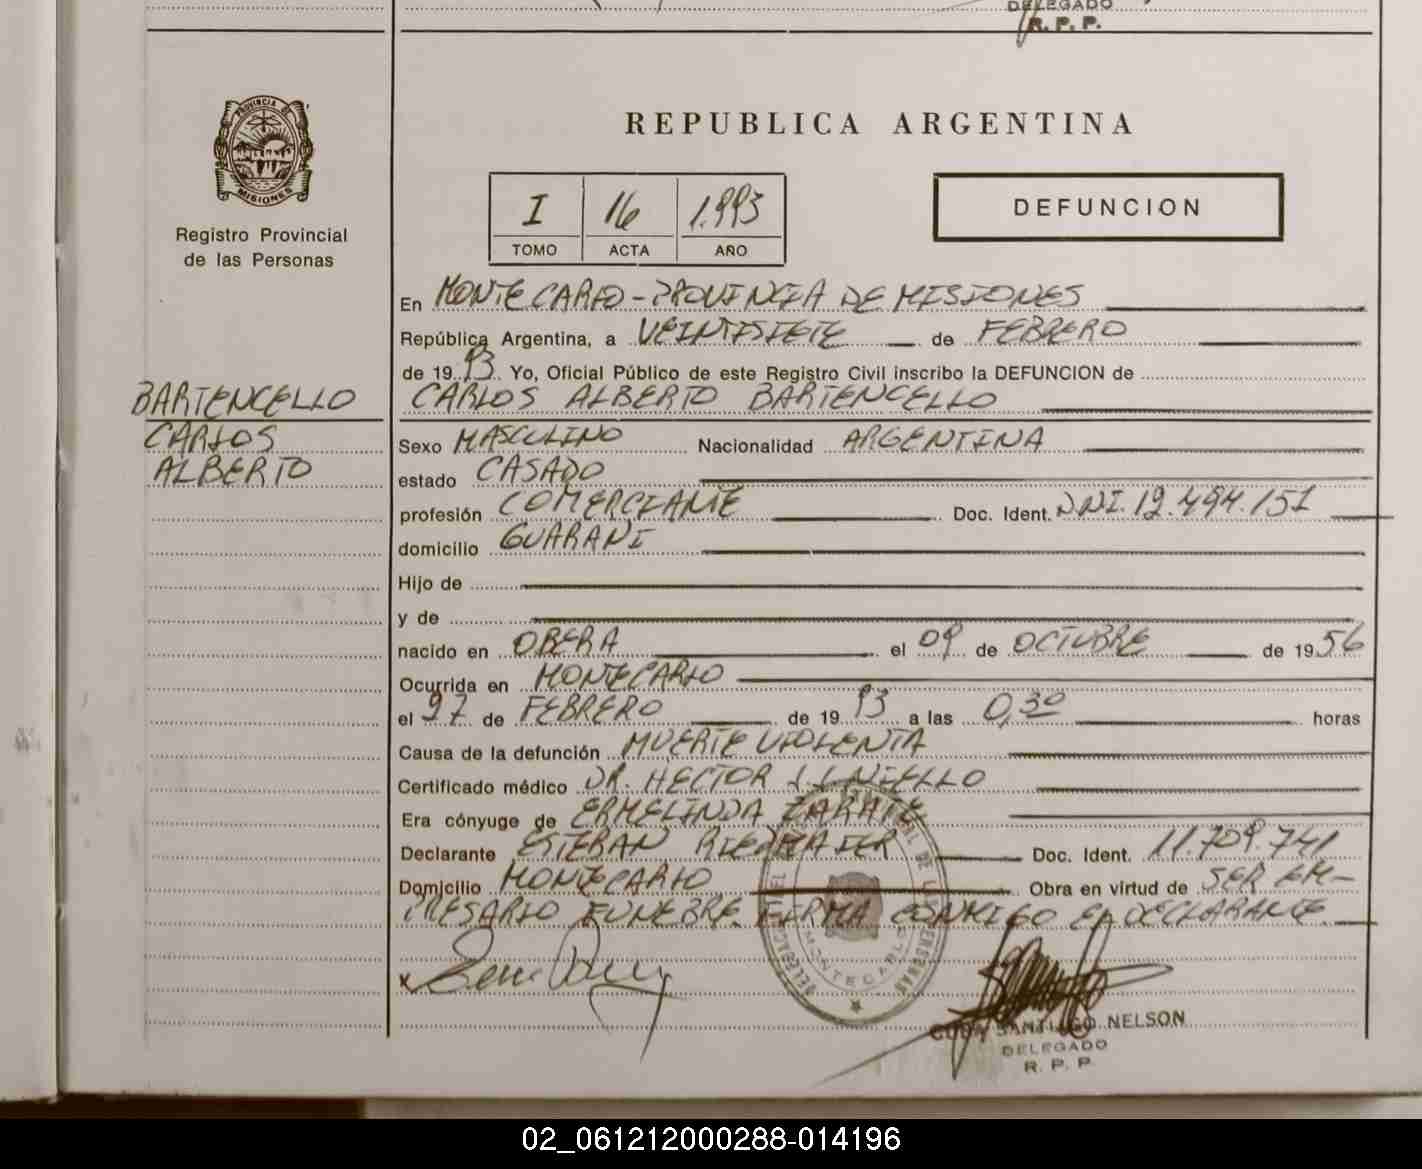 DELEGADO
R. P. P.
PROVINCIA DE
MISIONES
Registro Provincial
de las Personas
REPUBLICA ARGENTINA
I 16 1.993
TOMO ACTA AÑO
DEFUNCION
En MONTECARLO - PROVINCIA DE MISIONES
República Argentina, a VEINTISIETE de FEBRERO
de 1993 Yo, Oficial Público de este Registro Civil inscribo la DEFUNCION de
CARLOS ALBERTO BARTENCELLO
BARTENCELLO
CARLOS
ALBERTO
Sexo MASCULINO Nacionalidad ARGENTINA
estado CASADO
profesión COMERCIANTE Doc. Ident. D.N.I. 12.494.151
domicilio GUARANI
Hijo de
y de
nacido en OBERA el 09 de OCTUBRE de 1956
Ocurrida en MONTECARLO
el 27 de FEBRERO de 1993 a las 0,30 horas
Causa de la defunción MUERTE VIOLENTA
Certificado médico DR. HECTOR
Era cónyuge de ERMELINDA ZARATE
Declarante ESTEBAN Doc. Ident. 11.709.741
Domicilio MONTECARLO Obra en virtud de SER EM-
PRESARIO FUNEBRE. FIRMA CONMIGO EL DECLARANTE.
MONTECARLO
SANTIAGO NELSON
DELEGADO
R. P. P.
02_061212000288-014196